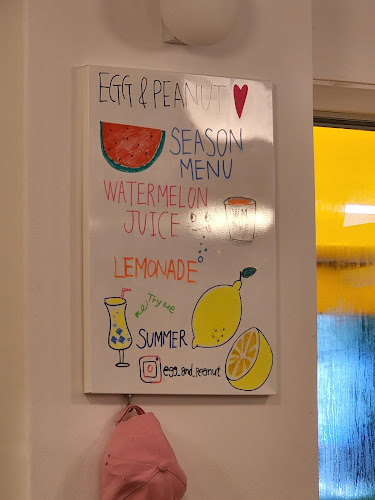 EGG & PEANUT
SEASON
MENU
WATERMELON
JUICE
LEMONADE
Try Me
SUMMER
egg_and_peanut